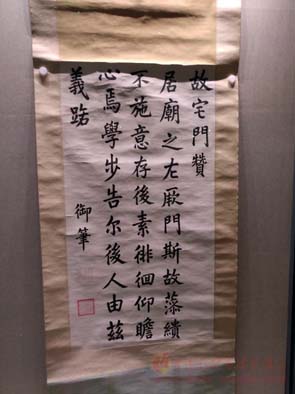 故宅門贊
居廟之左厥門斯故藻繢
不施意存後素徘徊仰瞻
心焉學步告尔後人由茲
義路
御筆